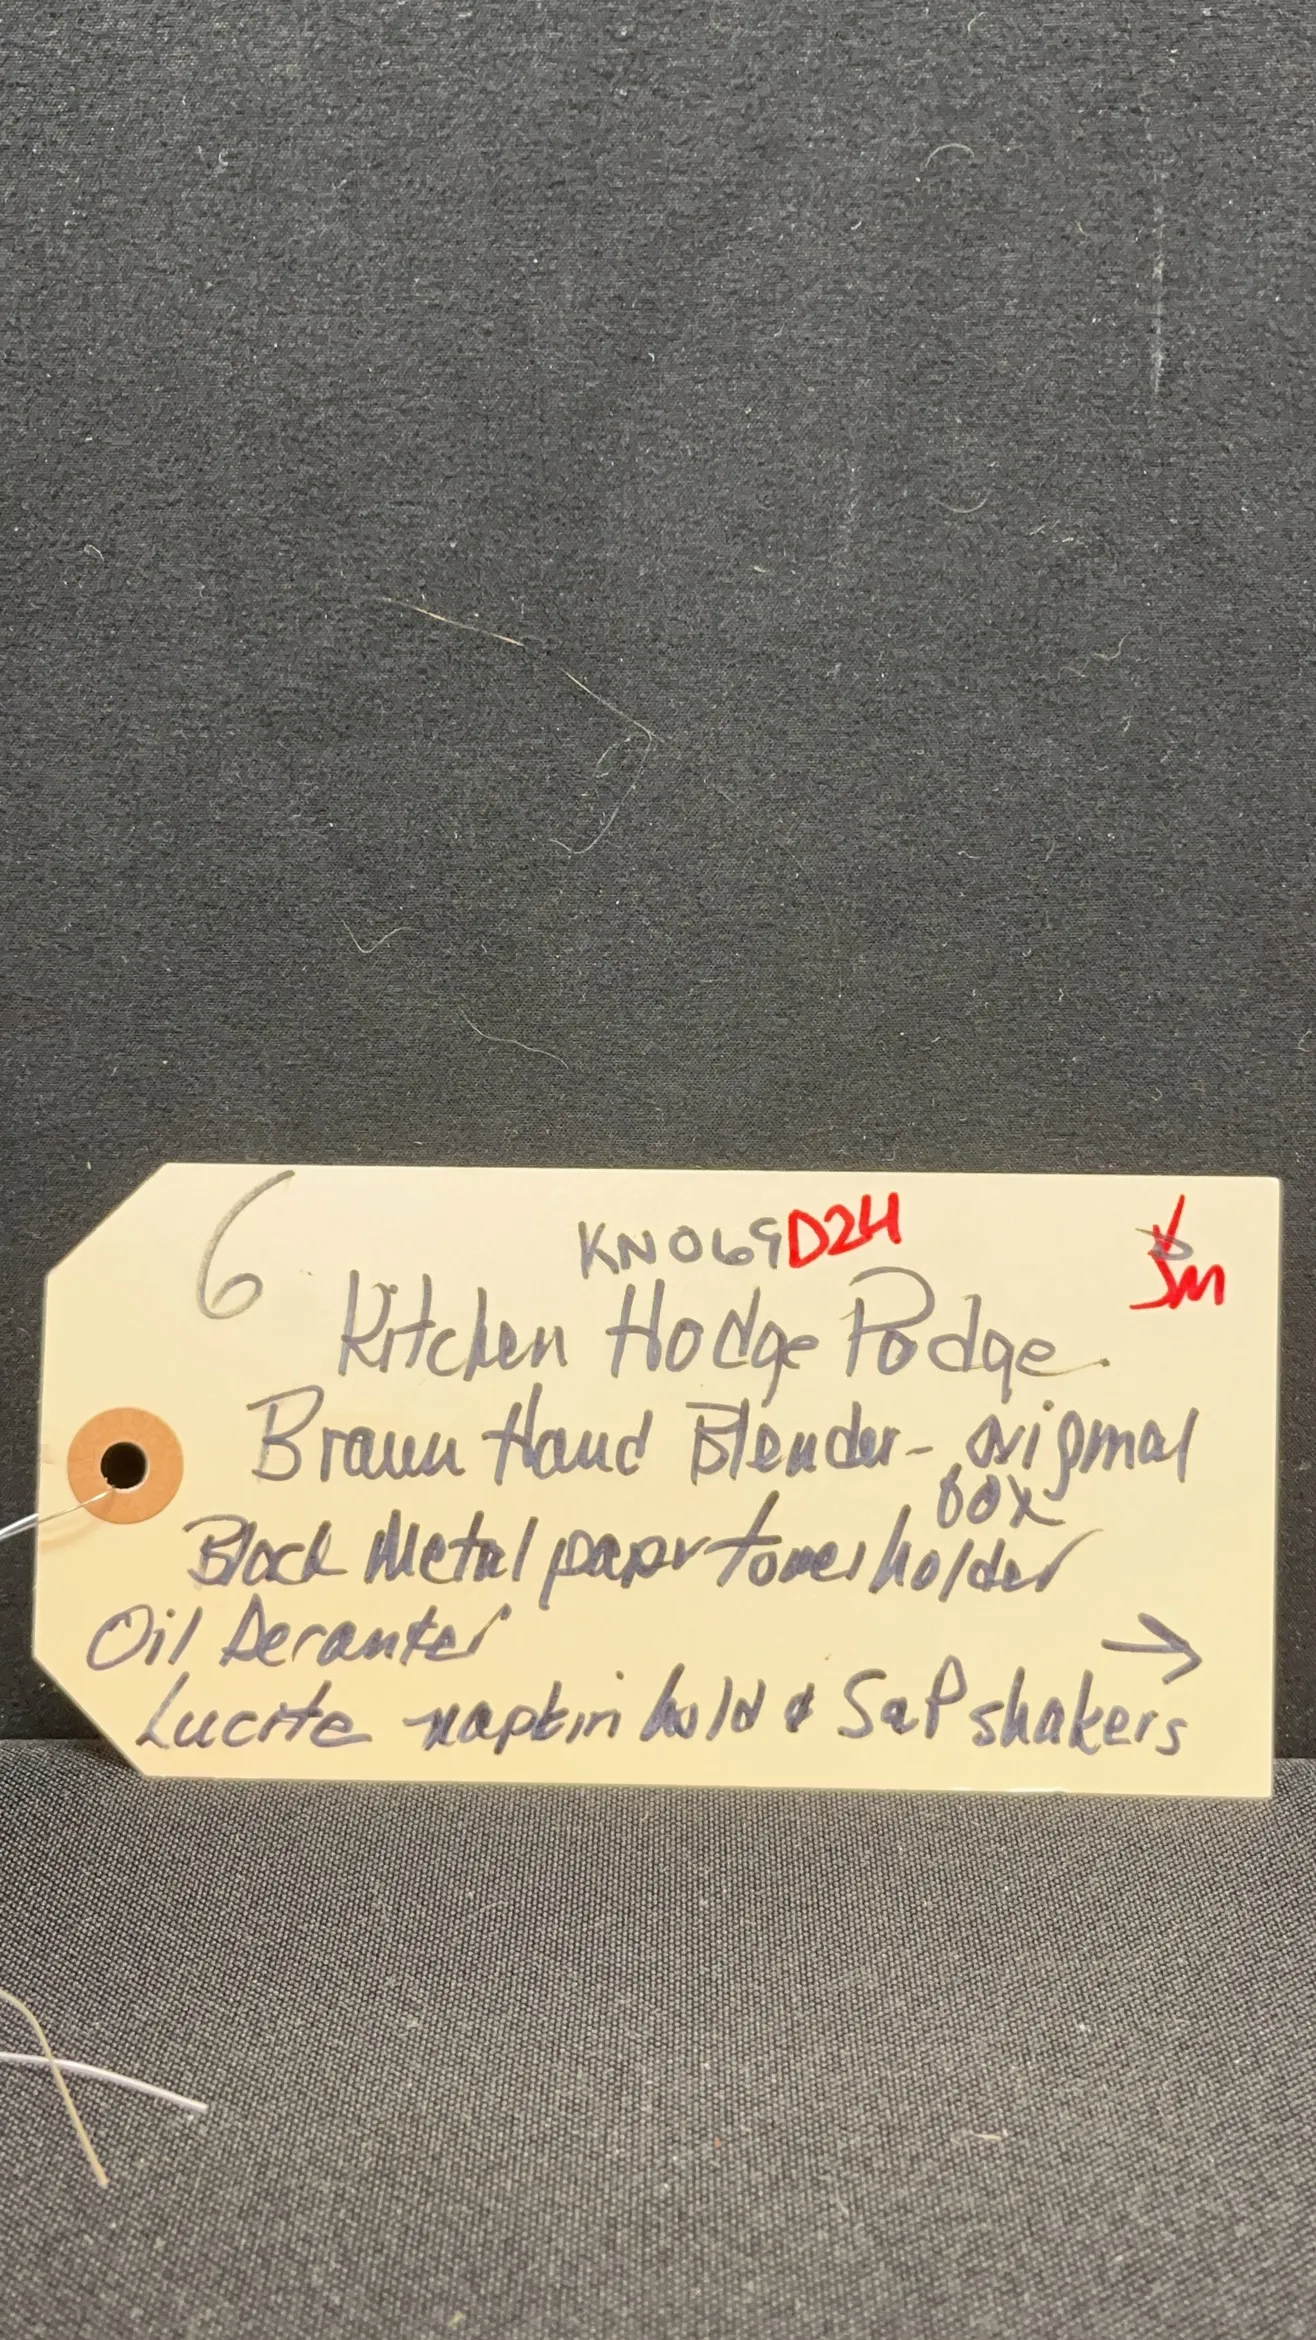 6
KN069 D24
Kitchen Hodge Podge
Braun Hand Blender - original
box
Black Metal paper towel holder
Oil Decanter
→
Lucite napkin hold & S&P shakers